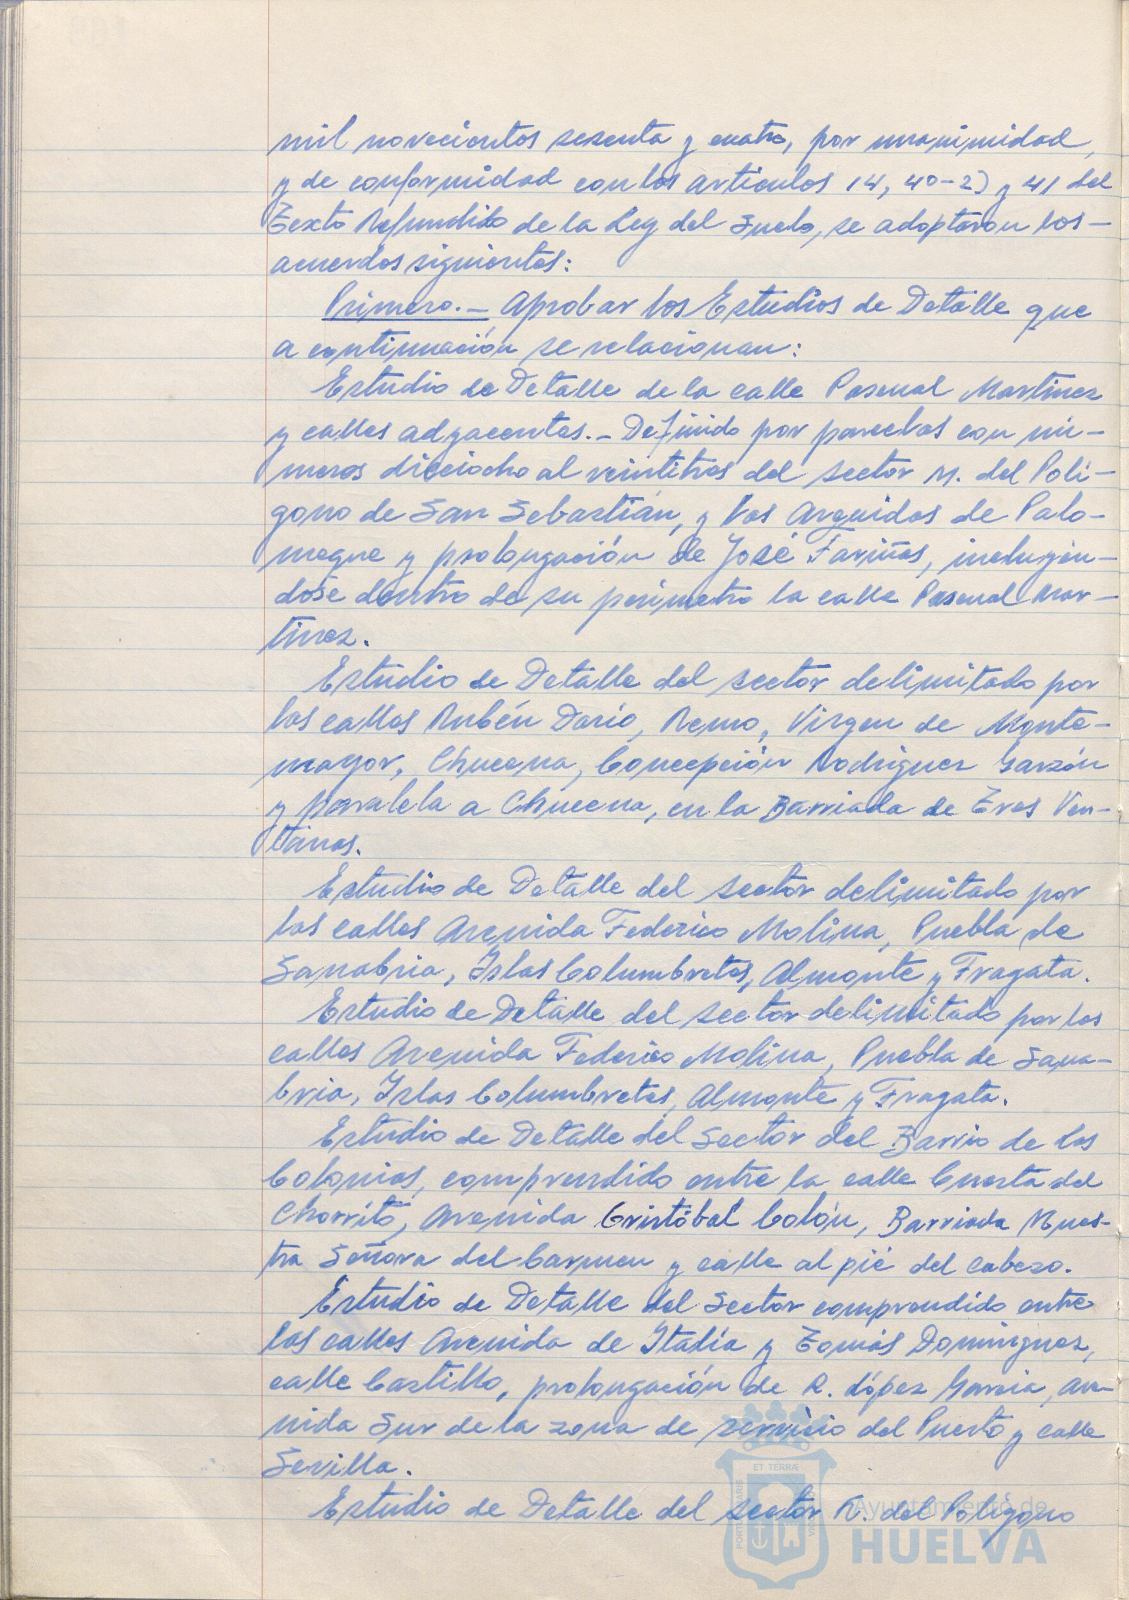 mil novecientos sesenta y cuatro, por unanimidad,
y de conformidad con los artículos 14, 40-2) y 41 del
Texto Refundido de la Ley del Suelo, se adoptaron los-
acuerdos siguientes:
Primero.- Aprobar los Estudios de Detalle que
a continuación se relacionan:
Estudio de Detalle de la calle Pascual Martinez
y calles adyacentes.- Definido por parcelas con nú-
meros dieciocho al veintitres del sector M. del Polí-
gono de San Sebastián, y las Arguidas de Palo-
meque y prolongación de José Fariñas, incluyén-
dose dentro de su perímetro la calle Pascual Mar-
tinez.
Estudio de Detalle del sector delimitado por
las calles Rubén Darío, Remo, Virgen de Monte-
mayor, Chucena, Concepción Rodriguez Garzón
y paralela a Chucena, en la Barriada de Tres Ven-
tanas.
Estudio de Detalle del sector delimitado por
las calles Avenida Federico Molina, Puebla de
Sanabria, Islas Columbretes, Almonte y Fragata.
Estudio de Detalle del sector delimitado por las
calles Avenida Federico Molina, Puebla de Sana-
bria, Islas Columbretes, Almonte y Fragata.
Estudio de Detalle del Sector del Barrio de las
Colonias, comprendido entre la calle Cuesta del
Chorrito, Avenida Cristóbal Colón, Barriada Nues-
tra Señora del Carmen y calle al pié del cabezo.
Estudio de Detalle del Sector comprendido entre
las calles Avenida de Italia y Tomás Dominguez,
calle Castillo, prolongación de R. López Garcia, ave-
nida Sur de la zona de servicio del Puerto y calle
Sevilla.
Estudio de Detalle del sector R. del Polígono
ET TERRÆ
Ayuntamiento de
HUELVA